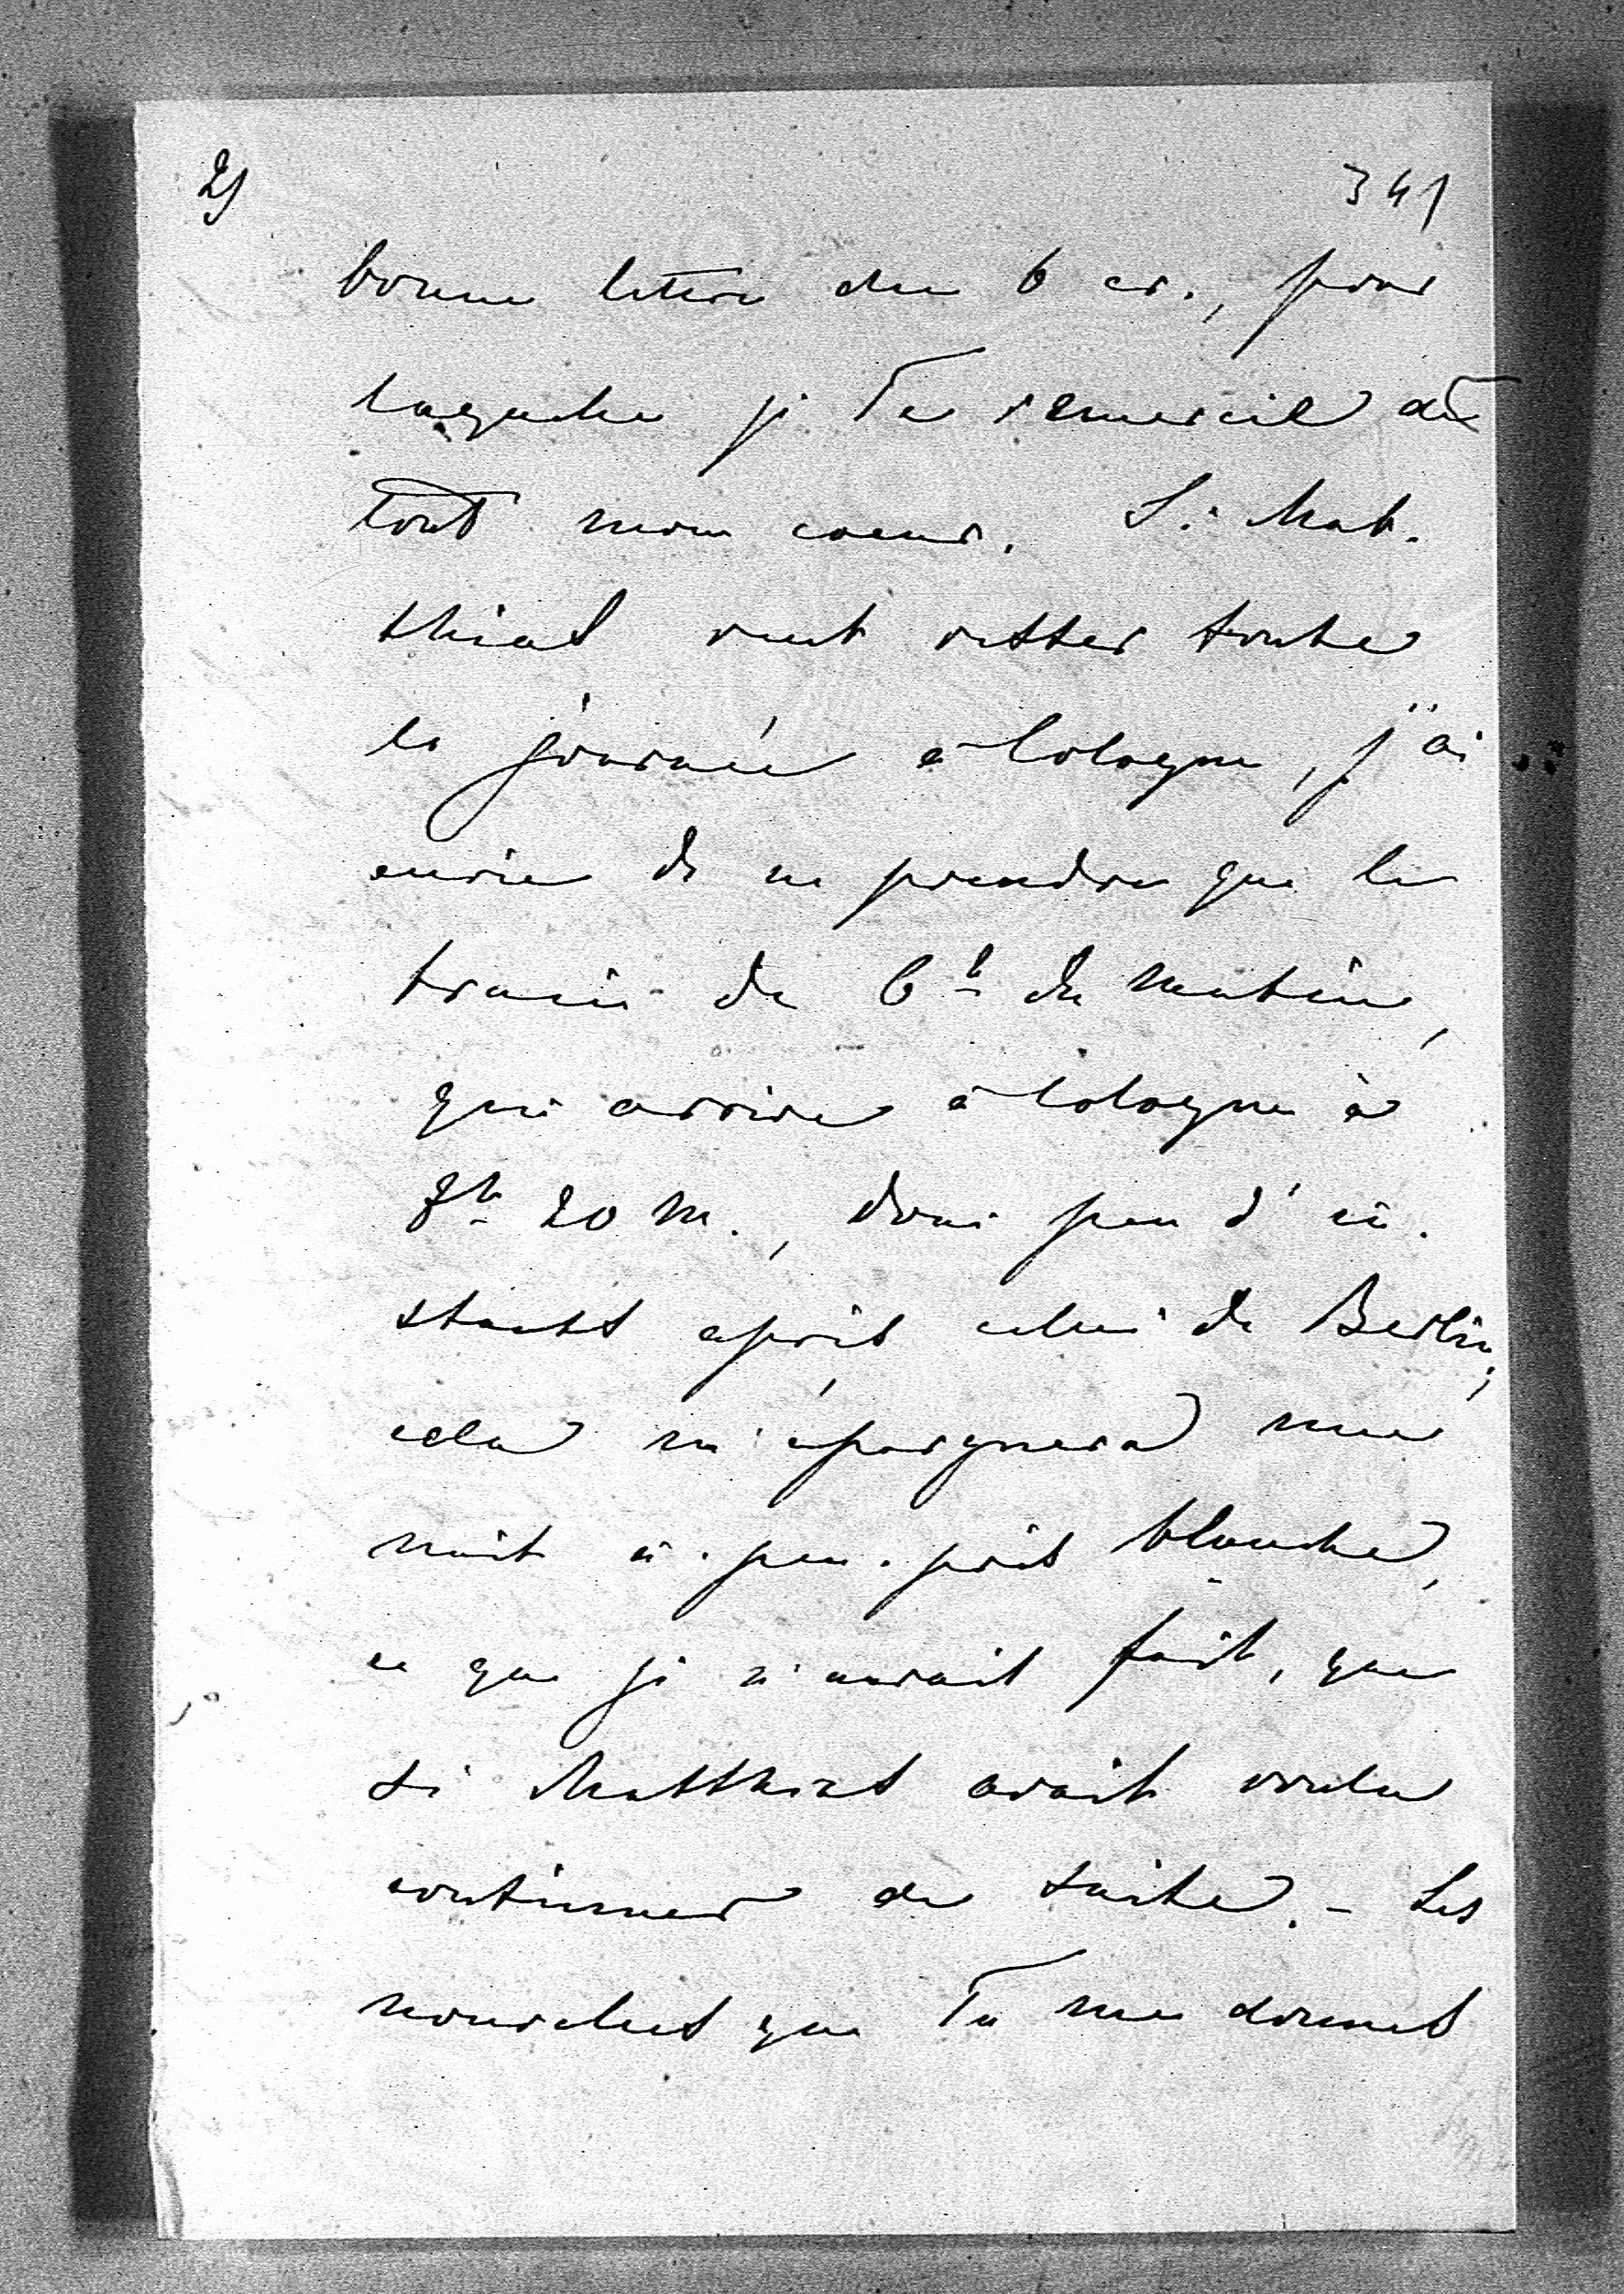 2)
341
bonne lettre du 6 cr., pour
laquelle je Te remercie de
tout mon coeur. Si Mat-
thias veut rester toute
la journée à Cologne, j'ai
envie de ne prendre que le
train de 6h du matin,
qui arrive à Cologne à
8h 20 m., donc peu d'in-
stants après celui de Berlin;
cela m'épargnera une
nuit à-peu-près blanche,
ce que je n'aurais fait, que
si Matthias avait voulu
continuer de suite. - Les
nouvelles que Tu me donnes